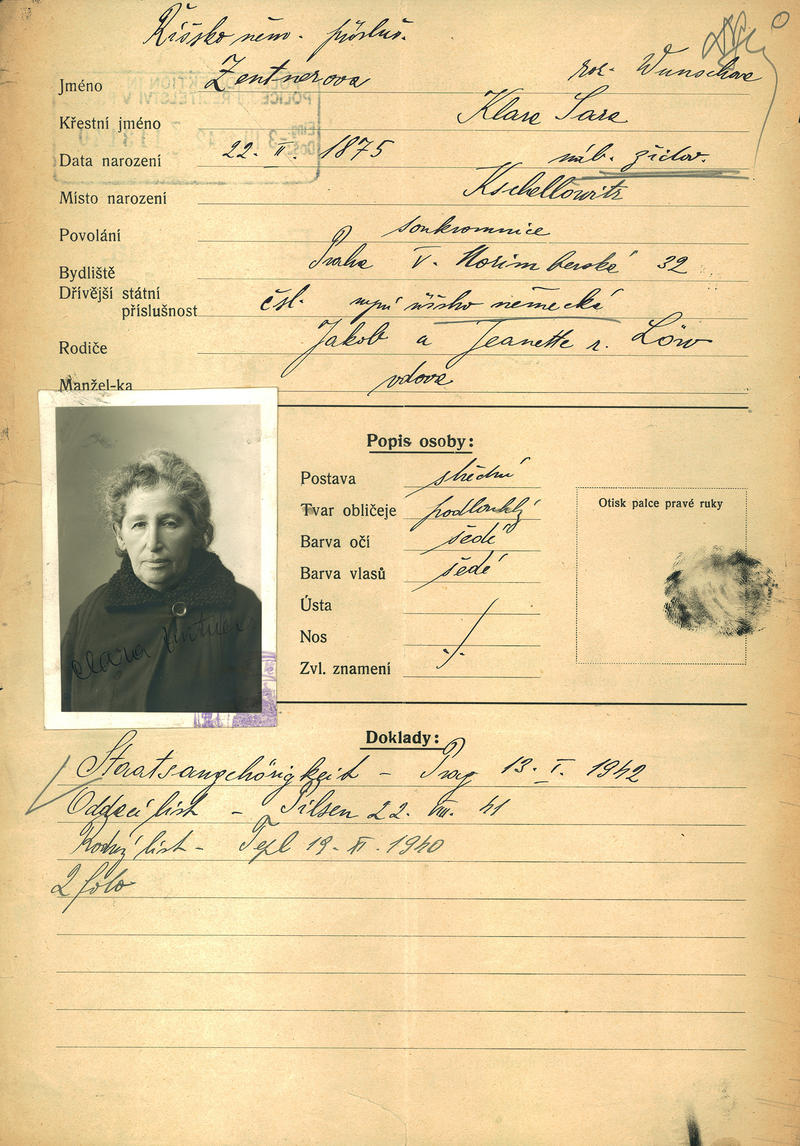 Říšsko něm. přísluš.
Jméno Zentnerova roz. Wunschova
Křestní jméno Klara Sara
Data narození 22. II. 1875 náb. židov.
Místo narození Kschellowitz
Povolání soukromnice
Bydliště Praha V. Norimberská 32
Dřívější státní
příslušnost čsl. nyní říšsko německá
Rodiče Jakob a Jeanette r. Löw
Manžel-ka vdova
Popis osoby:
Postava střední
Tvar obličeje podlouhlý
Barva očí šedé
Barva vlasů šedé
Ústa
Nos
Zvl. znamení
Otisk palce pravé ruky
Clara Zentner
Doklady:
Staatsangehörigkeit - Prag 13. I. 1942
Oddací list - Pilsen 22. VIII. 41
Rodný list - Tepl 19. XI. 1940
2 foto